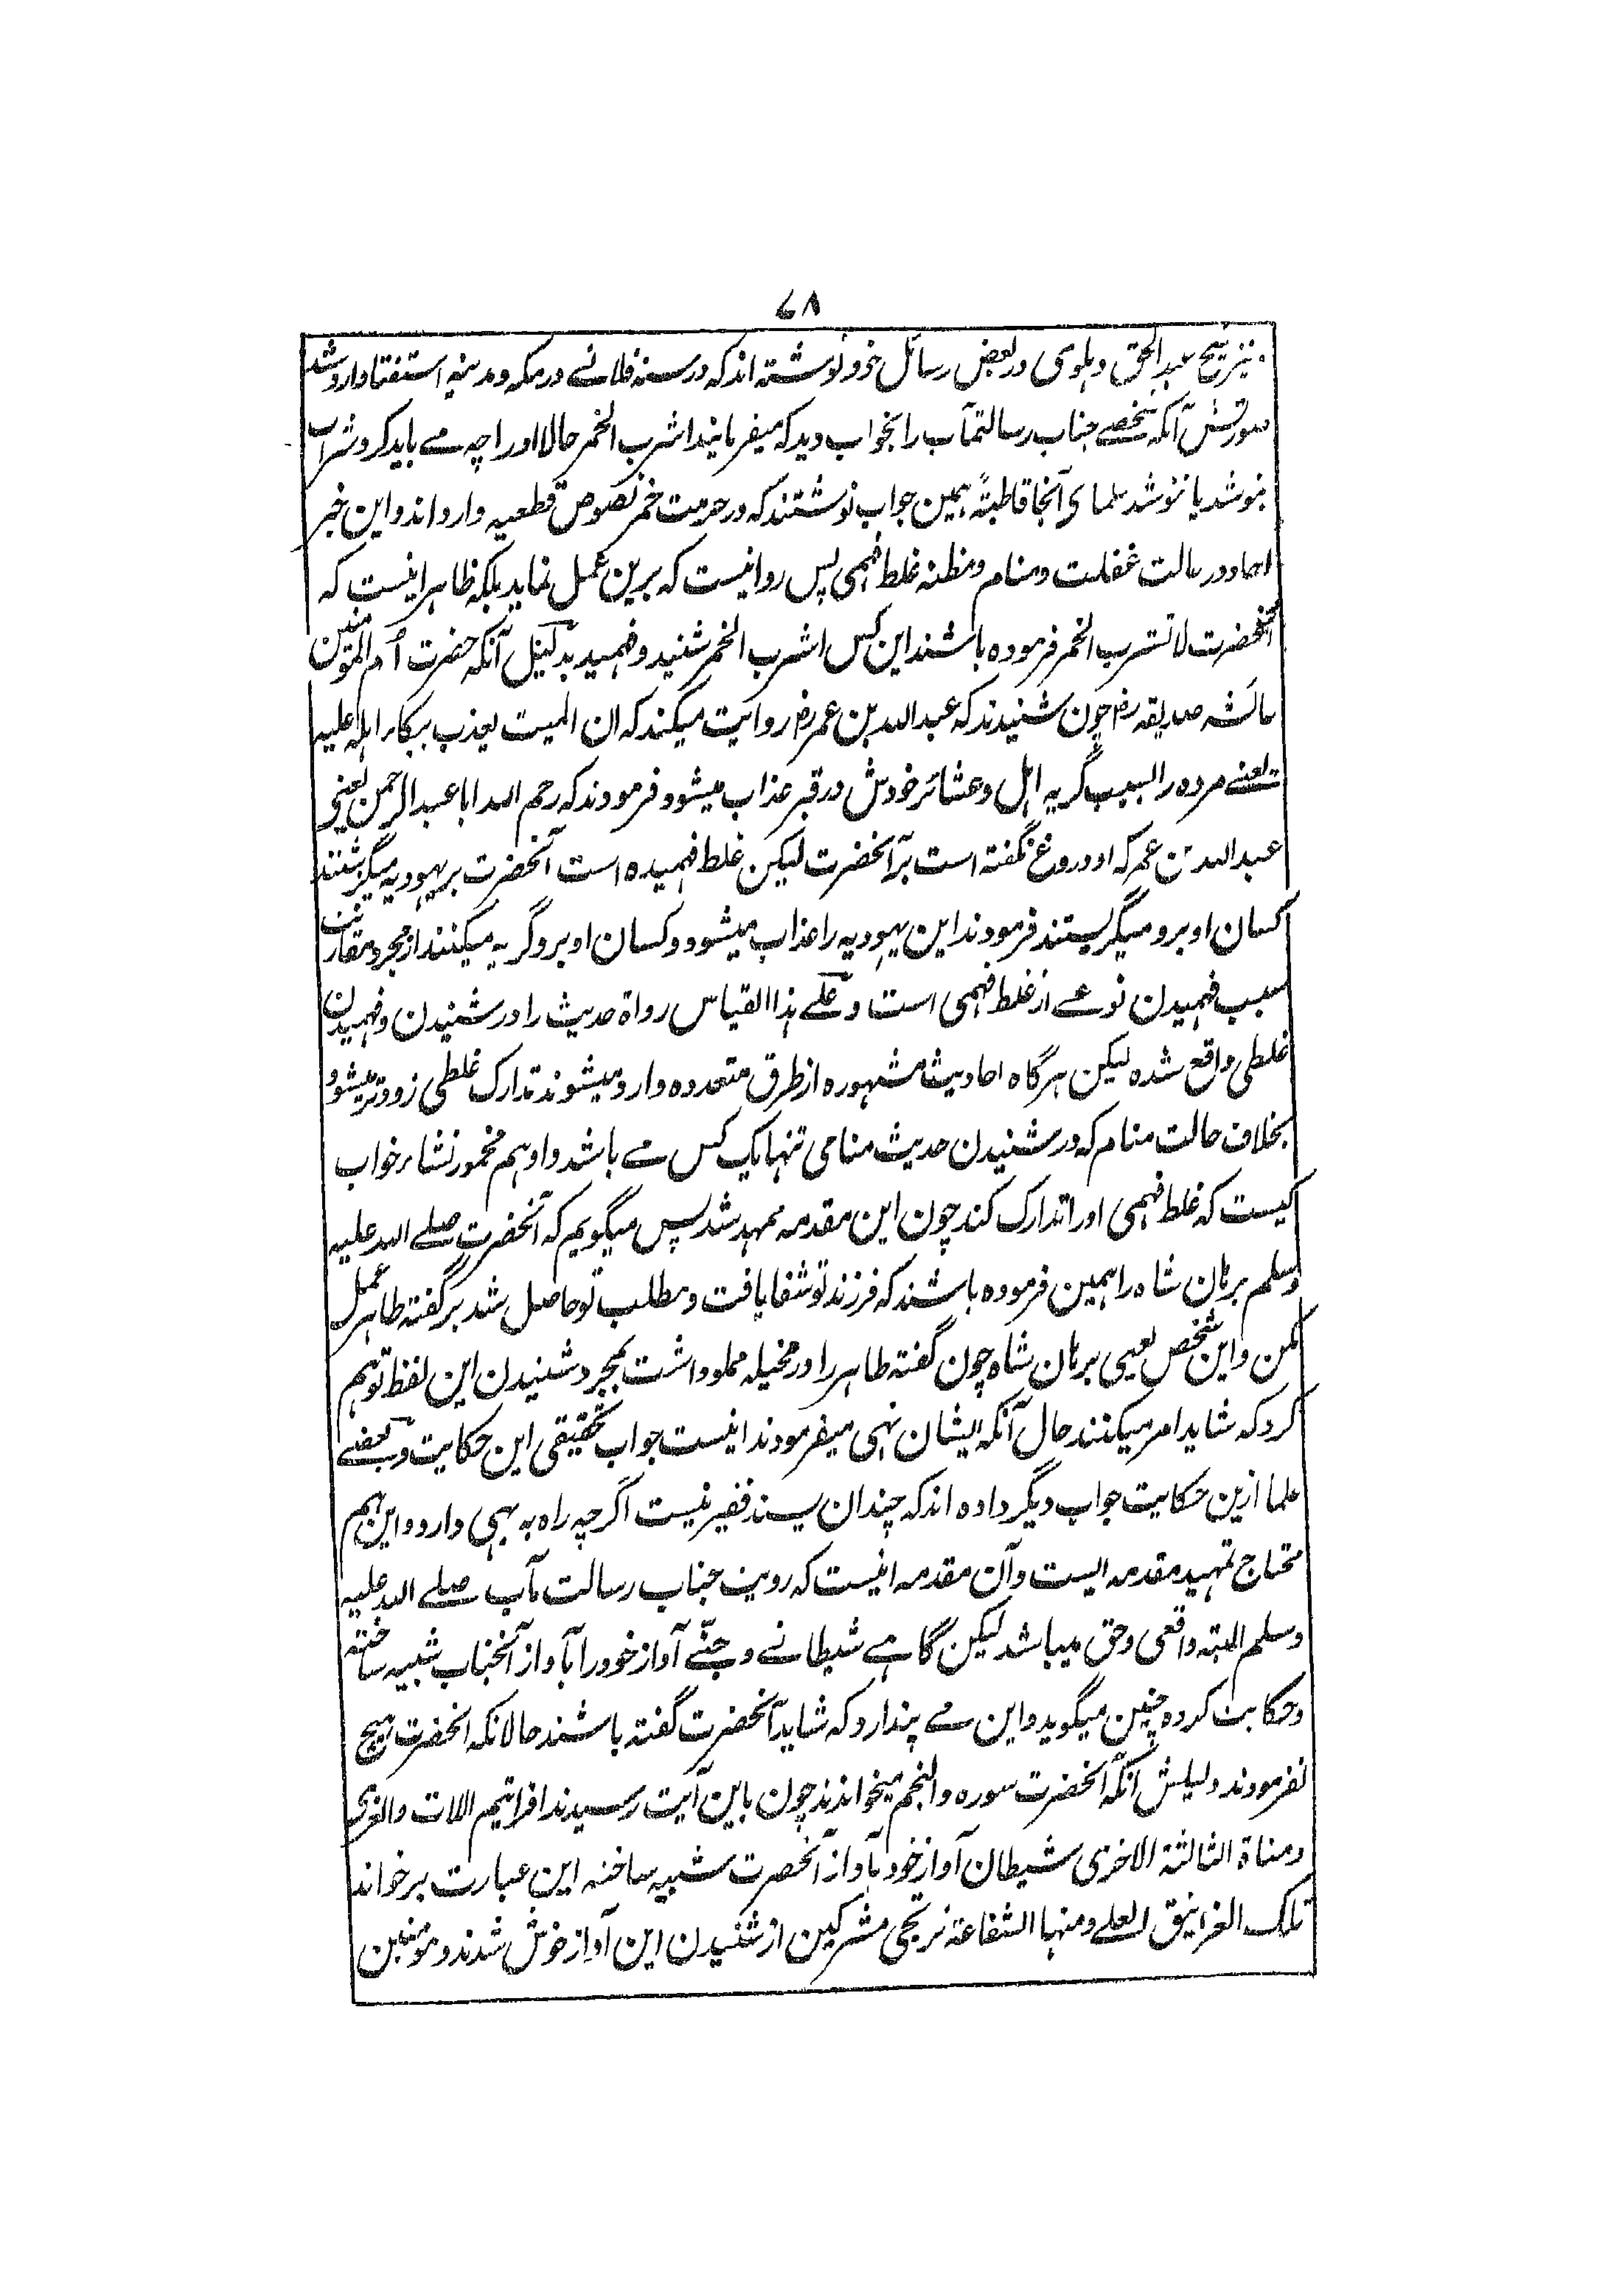 ۷۸
و نیز شیخ عبد الحق دہلوی در بعض رسائل خود نوشته اند که در سنه فلانے در مکه و مدینه استفتا وارد شد
صورتش آنکه شخصے جناب رسالتمآب را بخواب دید که میفرمایند اشرب الخمر حالا او را چه مے باید کرد شراب
بنوشد یا ننوشد علمای آنجا قاطبةً ہمین جواب نوشتند که در حرمت خمر نصوص قطعیه وارد اند و این خبر
احاد در حالت غفلت و منام و مظنه غلط فہمی پس روا نیست که برین عمل نماید بلکه ظاہر اینست که
آنحضرت لا تشرب الخمر فرموده باشند این کس اشرب الخمر شنید و فہمید بدلیل آنکه حضرت اُم المؤمنین
عائشه صدیقه رض چون شنیدند که عبد الله بن عمر رض روایت میکند که ان المیت یعذب ببکاء اہله علیه
یعنے مرده را بسبب گریه اہل و عشائر خودش در قبر عذاب میشود فرمودند که رحم الله ابا عبد الرحمن یعنی
عبد الله بن عمر که او دروغ نگفته است بر آنحضرت لیکن غلط فہمیده است آنحضرت بر یہودیه میگزشتند
کسان او برو میگریستند فرمودند این یہودیه را عذاب میشود و کسان او برو گریه میکنند از مجرد مقارنت
سبب فہمیدن نوعے از غلط فہمی است و علے ہذا القیاس رواة حدیث را در شنیدن و فہمیدن
غلطی واقع شده لیکن ہر گاه احادیث مشہوره از طرق متعدده وارد میشوند تدارک غلطی زودتر میشود
بخلاف حالت منام که در شنیدن حدیث منامی تنہا یک کس مے باشد و او ہم مخمور نشاء خواب
کیست که غلط فہمی او را تدارک کند چون این مقدمه ممہد شد پس میگویم که آنحضرت صلے الله علیه
وسلم برہان شاه را ہمین فرموده باشند که فرزند تو شفا یافت و مطلب تو حاصل شد بر گفته طاہر عمل
مکن و این شخص یعنی برہان شاه چون گفته طاہر را در مخیله مملو داشت بمجرد شنیدن این لفظ توہم
کرد که شاید امر میکنند حال آنکه ایشان نہی میفرمودند اینست جواب تحقیقی این حکایت و بعضے
علما ازین حکایت جواب دیگر داده اند که چندان پسند فقیر نیست اگرچه راه به بہی دارد و این ہم
محتاج تمہید مقدمه ایست و آن مقدمه اینست که رویت جناب رسالت مآب صلے الله علیه
وسلم البته واقعی و حق میباشد لیکن گاہے شیطانے و جنّے آواز خود را بآواز آنجناب شبیه ساخته
و حکایت کرده چنین میگوید و این مے پندارد که شاید آنحضرت گفته باشند حالانکه آنحضرت ہیچ
نفرمودند دلیلش آنکه آنحضرت سوره والنجم میخواندند چون باین آیت رسیدند افرایتم اللات والعزی
ومناة الثالثة الاخری شیطان آواز خود بآواز آنحضرت شبیه ساخته این عبارت برخواند
تلک الغرانیق العلے ومنہا الشفاعة ترتجی مشرکین از شنیدن این آواز خوش شدند و مومنین